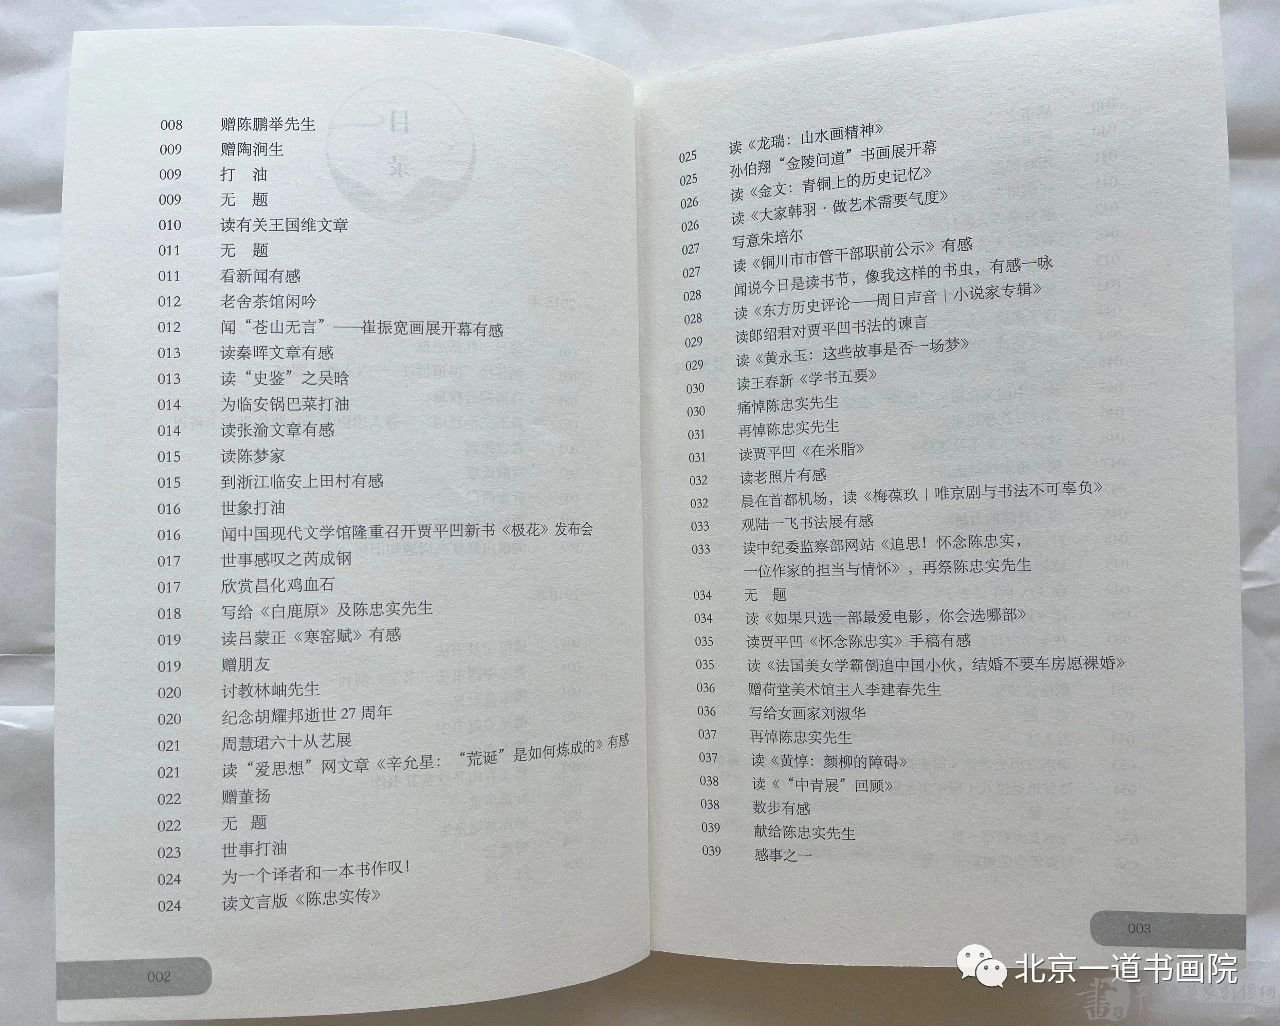 008 赠陈鹏举先生
009 赠陶涧生
009 打 油
009 无 题
010 读有关王国维文章
011 无 题
011 看新闻有感
012 老舍茶馆闲吟
012 闻“苍山无言”——崔振宽画展开幕有感
013 读秦晖文章有感
013 读“史鉴”之吴晗
014 为临安锅巴菜打油
014 读张渝文章有感
015 读陈梦家
015 到浙江临安上田村有感
016 世象打油
016 闻中国现代文学馆隆重召开贾平凹新书《极花》发布会
017 世事感叹之芮成钢
017 欣赏昌化鸡血石
018 写给《白鹿原》及陈忠实先生
019 读吕蒙正《寒窑赋》有感
019 赠朋友
020 讨教林岫先生
020 纪念胡耀邦逝世 27 周年
021 周慧珺六十从艺展
021 读“爱思想”网文章《辛允星：“荒诞”是如何炼成的》有感
022 赠董扬
022 无 题
023 世事打油
024 为一个译者和一本书作叹！
024 读文言版《陈忠实传》
002
025 读《龙瑞：山水画精神》
025 孙伯翔“金陵问道”书画展开幕
026 读《金文：青铜上的历史记忆》
026 读《大家韩羽·做艺术需要气度》
027 写意朱培尔
027 读《铜川市市管干部职前公示》有感
028 闻说今日是读书节，像我这样的书虫，有感一咏
028 读《东方历史评论——周日声音｜小说家专辑》
029 读郎绍君对贾平凹书法的谏言
029 读《黄永玉：这些故事是否一场梦》
030 读王春新《学书五要》
030 痛悼陈忠实先生
031 再悼陈忠实先生
031 读贾平凹《在米脂》
032 读老照片有感
032 晨在首都机场，读《梅葆玖｜唯京剧与书法不可辜负》
033 观陆一飞书法展有感
033 读中纪委监察部网站《追思！怀念陈忠实，
一位作家的担当与情怀》，再祭陈忠实先生
034 无 题
034 读《如果只选一部最爱电影，你会选哪部》
035 读贾平凹《怀念陈忠实》手稿有感
035 读《法国美女学霸倒追中国小伙，结婚不要车房愿裸婚》
036 赠荷堂美术馆主人李建春先生
036 写给女画家刘淑华
037 再悼陈忠实先生
037 读《黄惇：颜柳的障碍》
038 读《“中青展”回顾》
038 数步有感
039 献给陈忠实先生
039 感事之一
003
北京一道书画院